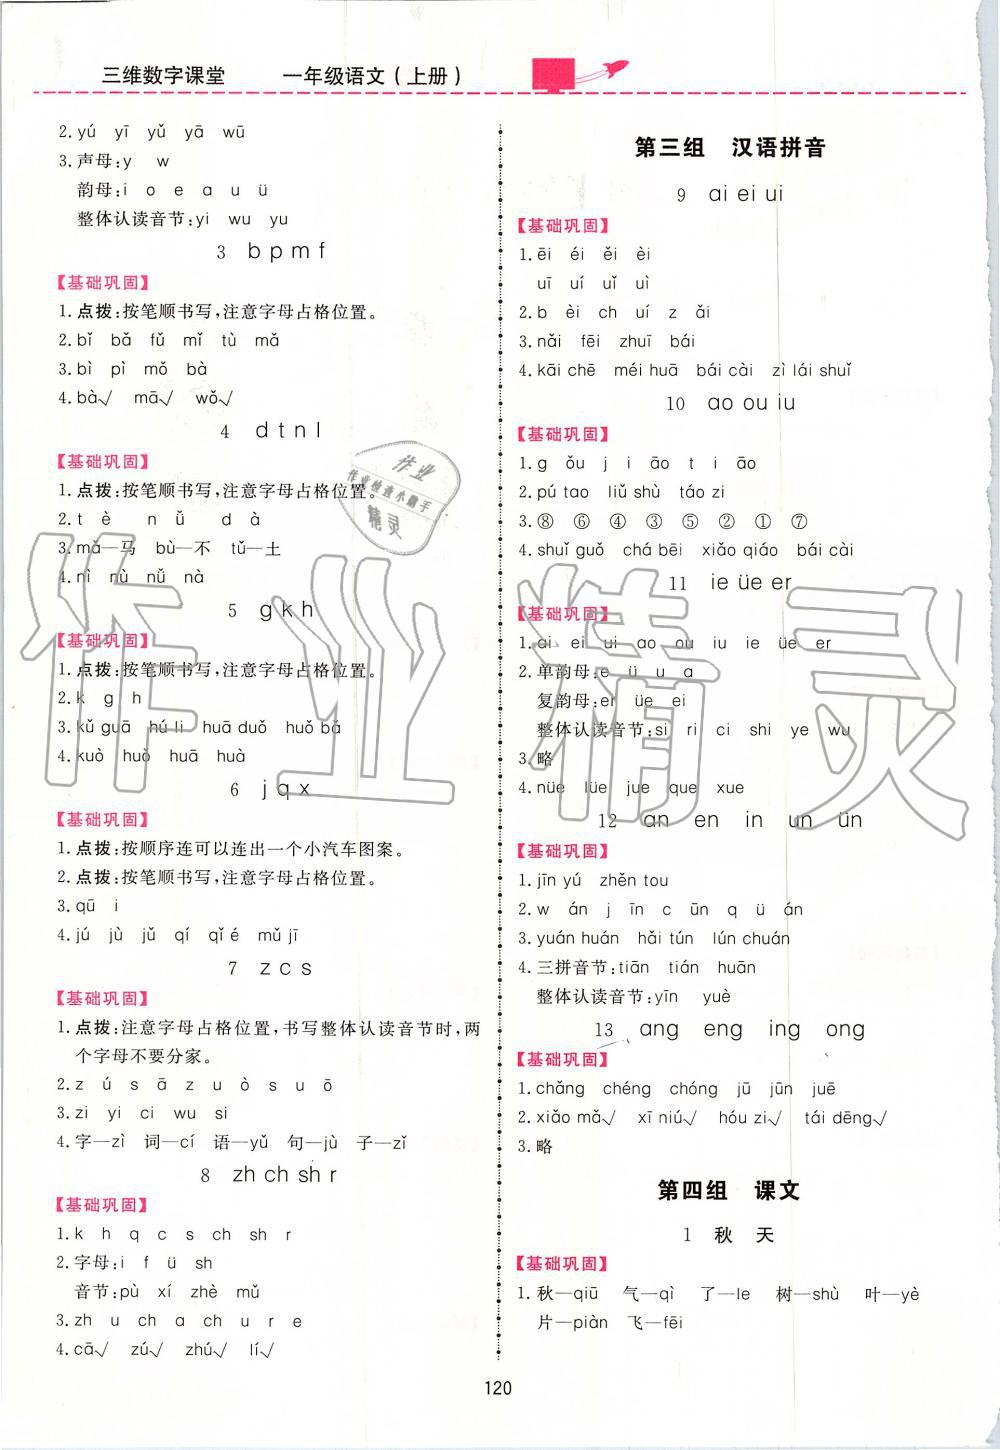 三维数字课堂 一年级语文(上册)
2.yú yī yǔ yā wū
3.声母:y w
韵母:i o e a u ü
整体认读音节:yi wu yu
3 b p m f
【基础巩固】
1.点拨:按笔顺书写,注意字母占格位置。
2.bǐ bǎ fǔ mǐ tù mǎ
3.bì pì mǒ bà
4.bà√ mā√ wǒ√
4 d t n l
【基础巩固】
1.点拨:按笔顺书写,注意字母占格位置。
2.t è n ǚ d à
3.mǎ—马 bù—不 tǔ—土
4.nì nù nǚ nà
5 g k h
【基础巩固】
1.点拨:按笔顺书写,注意字母占格位置。
2.k g h
3.kǔ guā hú li huā duǒ huǒ bǎ
4.kuò huǒ huā huà
6 j q x
【基础巩固】
1.点拨:按顺序连可以连出一个小汽车图案。
2.点拨:按笔顺书写,注意字母占格位置。
3.qū i
4.jú jù jǔ qí qǐ é mǔ jī
7 z c s
【基础巩固】
1.点拨:注意字母占格位置,书写整体认读音节时,两
个字母不要分家。
2.z ú s ā z u ò s u ō
3.zi yi ci wu si
4.字—zì 词—cí 语—yǔ 句—jù 子—zǐ
8 zh ch sh r
【基础巩固】
1.k h q c s ch sh r
2.字母:i f ü sh
音节:pù xí zhè mǔ
3.zh u ch a ch u r e
4.cā√ zú√ shǔ√ lí√
第三组 汉语拼音
9 ai ei ui
【基础巩固】
1.ēi éi ěi èi
uī uí uǐ uì
2.b èi ch uí z ǎi
3.nǎi fēi zhuī bái
4.kāi chē méi huā bái cài zì lái shuǐ
10 ao ou iu
【基础巩固】
1.g ǒu j i āo t i āo
2.pú tao liǔ shù táo zi
3.⑧ ⑥ ④ ③ ⑤ ② ① ⑦
4.shuǐ guǒ chá bēi xiǎo qiáo bái cài
11 ie üe er
【基础巩固】
1.ai ei ui ao ou iu ie üe er
2.单韵母:e ü u a
复韵母:er üe ei
整体认读音节:si ri ci shi ye wu
3.略
4.nüe lüe jue que xue
12 an en in un ün
【基础巩固】
1.jīn yú zhěn tou
2.w án j īn c ūn q ü án
3.yuán huán hǎi tún lún chuán
4.三拼音节:tiān tián huān
整体认读音节:yīn yuè
13 ang eng ing ong
【基础巩固】
1.chǎng chéng chóng jū jūn juē
2.xiǎo mǎ√ xī niú√ hóu zi√ tái dēng√
3.略
第四组 课文
1 秋 天
【基础巩固】
1.秋—qiū 气—qì 了—le 树—shù 叶—yè
片—piàn 飞—fēi
120
作业
作业检查小帮手
精灵
作业精灵